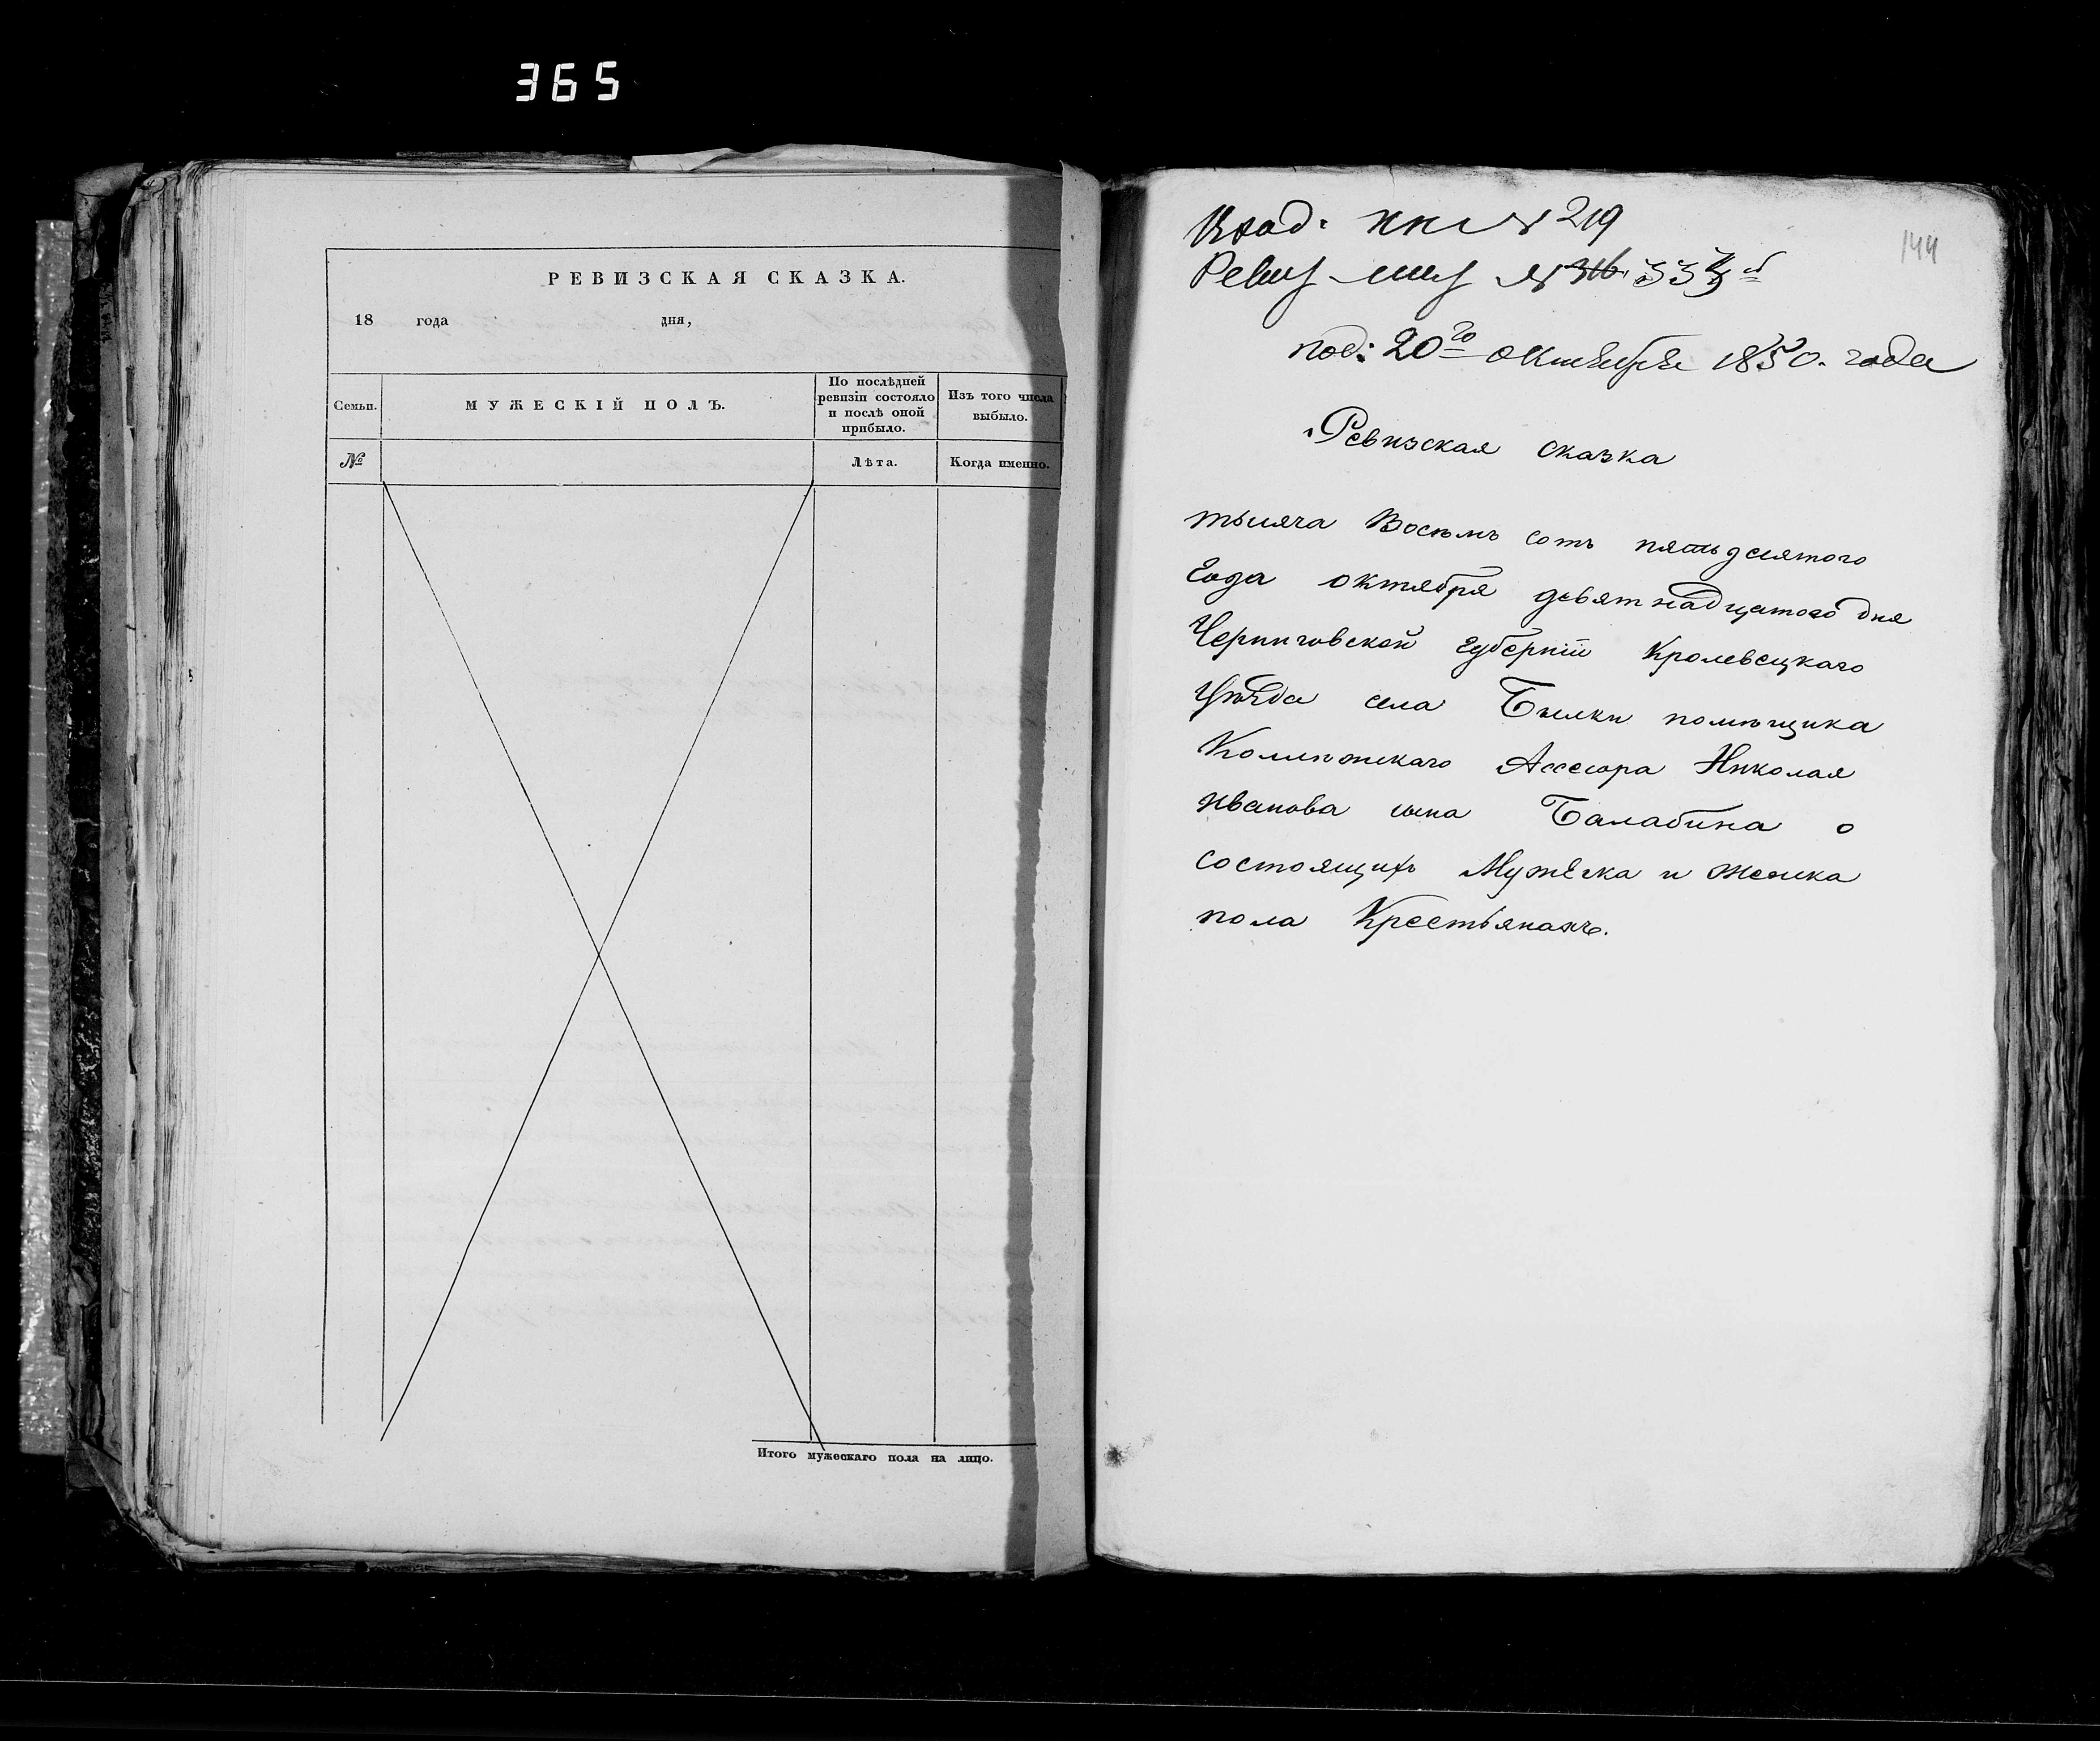 365
РЕВИЗСКАЯ СКАЗКА.
18 года дня,
Семьи.
МУЖЕСКІЙ ПОЛЪ.
По послѣдней
ревизіи состояло
и послѣ оной
прибыло.
Изъ того числа
выбыло.
№
Лѣта.
Когда именно.
Итого мужескаго пола на лицо.
144
№ 219
№
под: 20го октября 1850. года
Ревизская сказка
тысяча Восемь сотъ пятьдесятого
Года октября девятнадцатого дня
Черниговской Губерніи Кролевецкаго
Уѣзда села Билки помѣщика
Колежскаго Ассесора Николая
Иванова сына Балабина о
состоящихъ Мужеска и женска
пола Крестьянахъ.